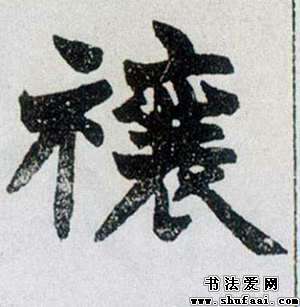 禳
书法爱网
www.shufaai.com